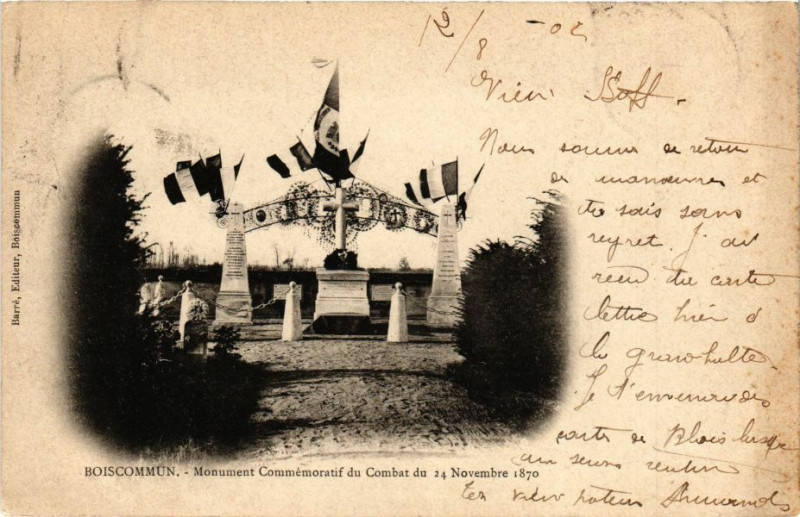 12/8 - 02
Vieux
Nous sommes de retour
de manœuvres et
tu sais sans
regret. J'ai
reçu ta carte
lettre hier à
la grand'halte.
Je t'enverrai des
cartes de Blois
Ton vieux poteau
Barré, Editeur, Boiscommun
BOISCOMMUN. - Monument Commémoratif du Combat du 24 Novembre 1870